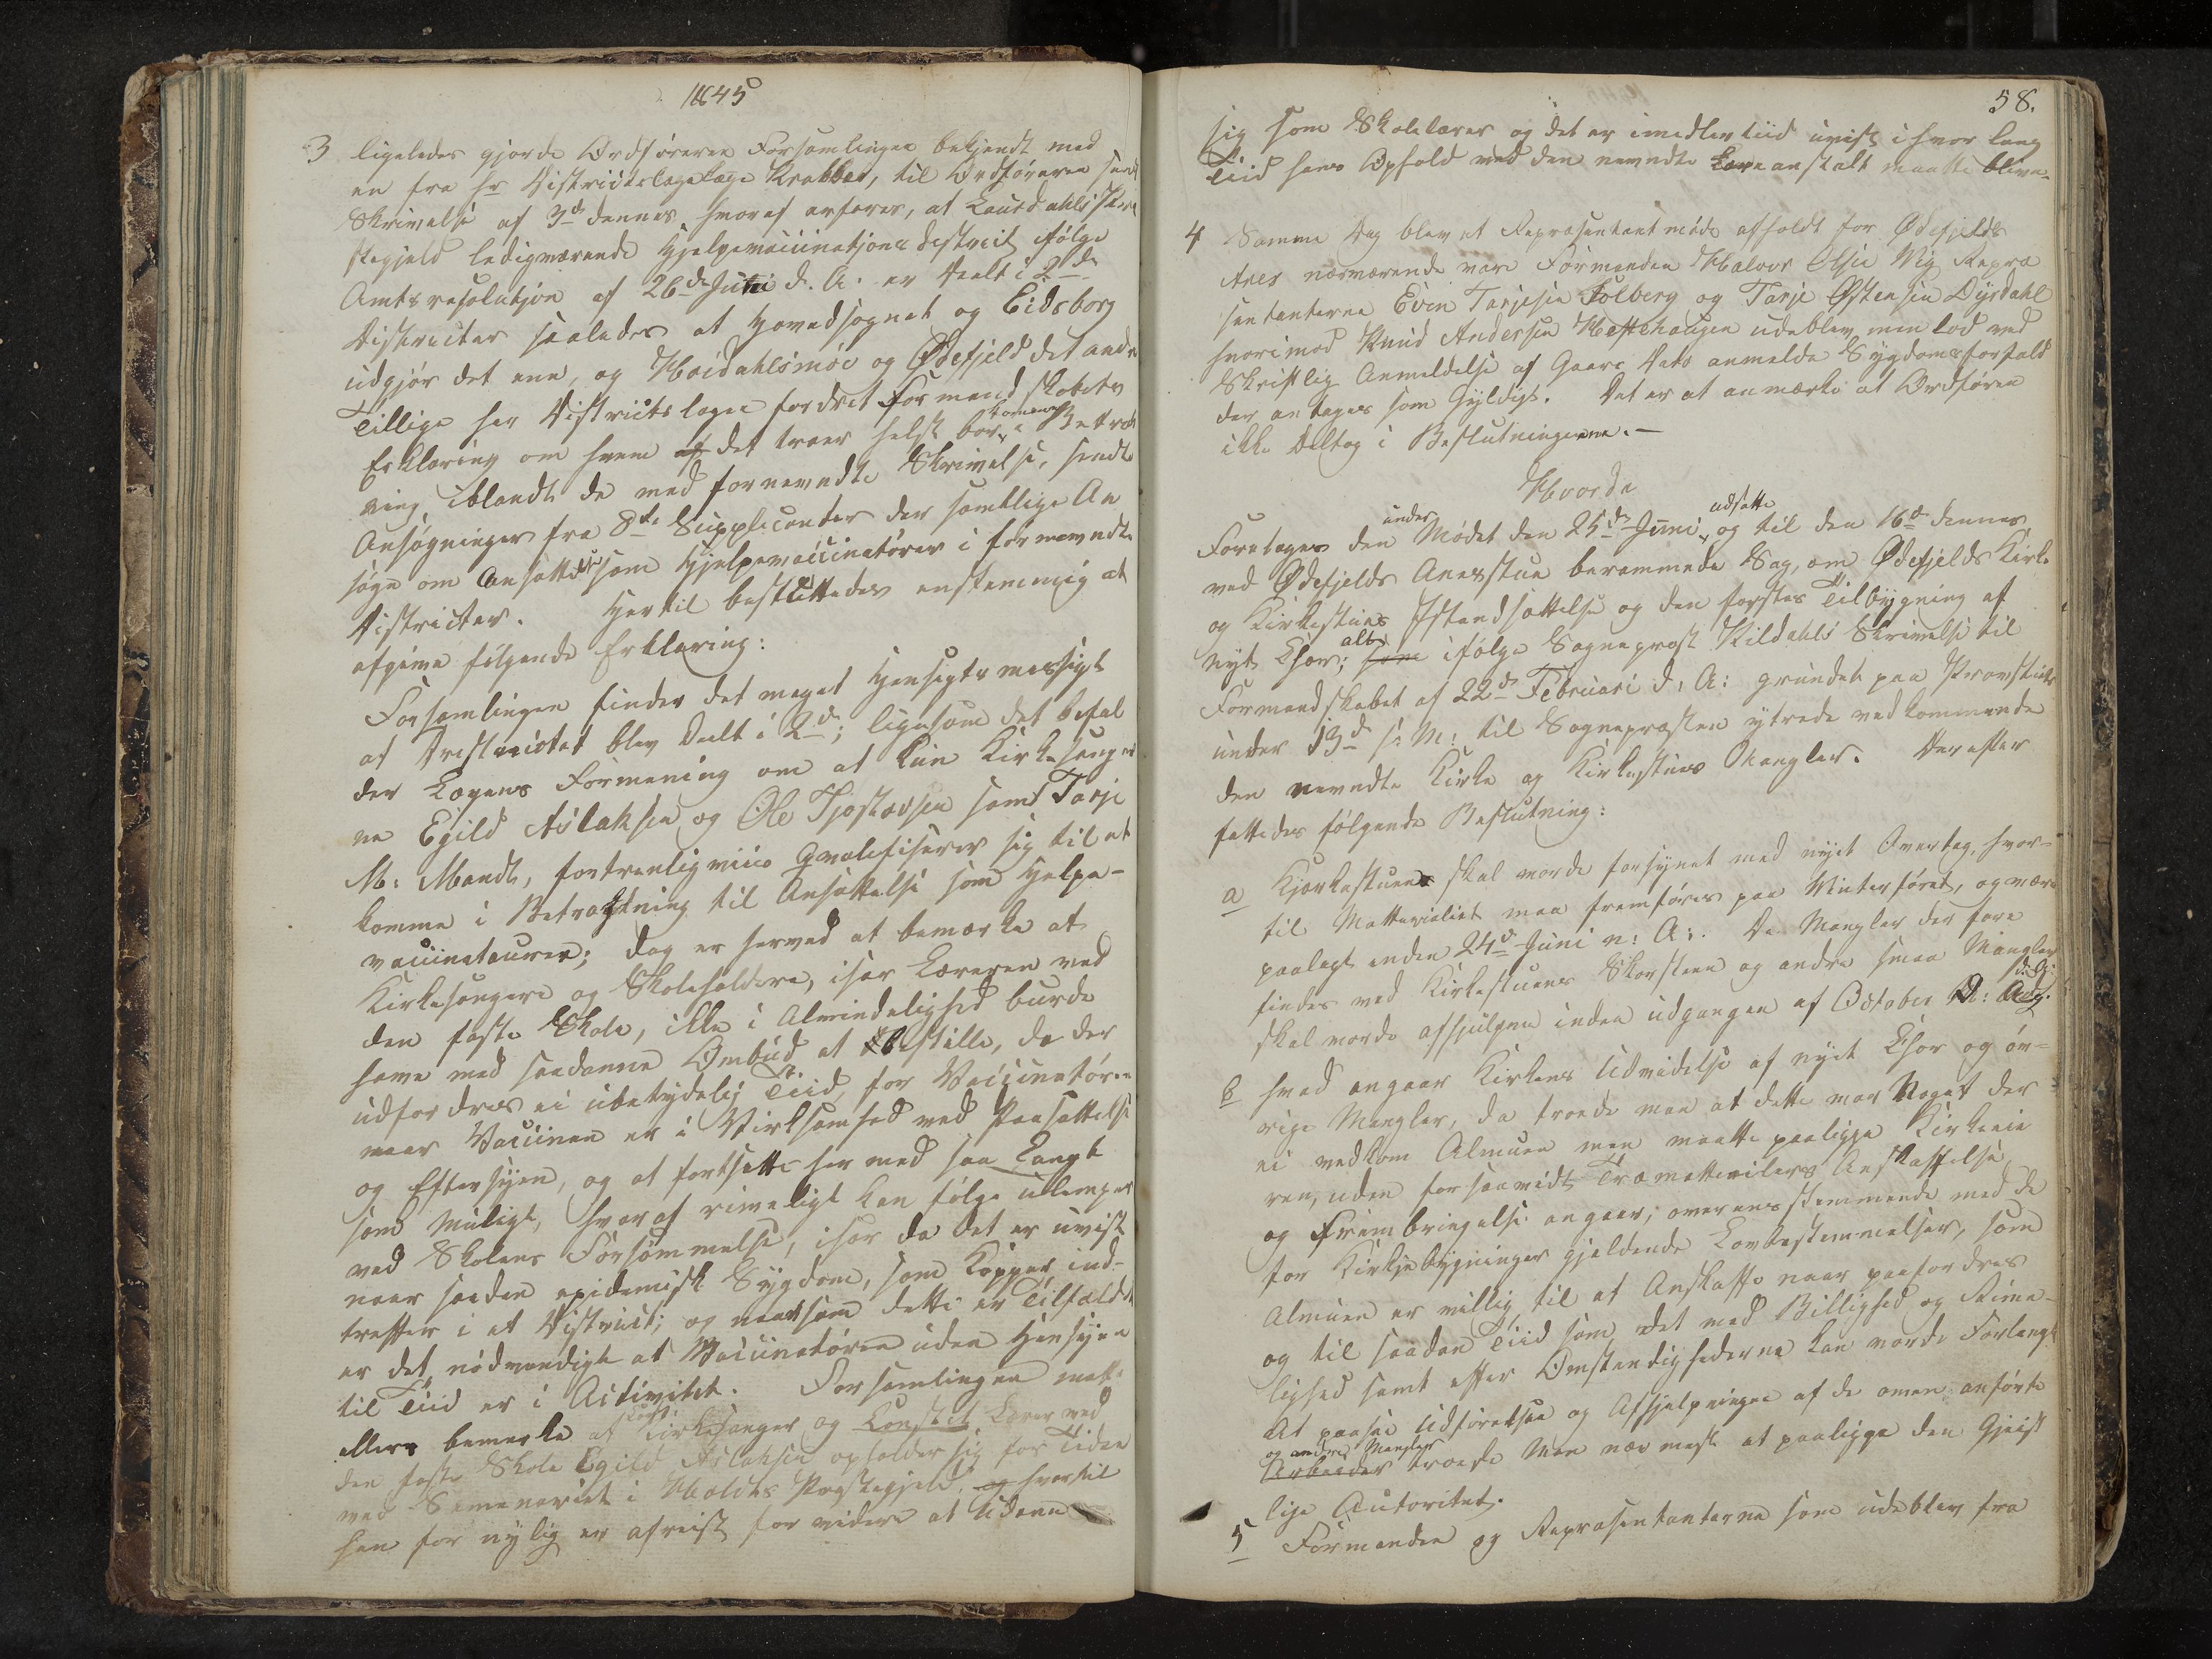 1845
3 ligeledes gjorde Ordføreren Forsamlingen bekjendt med
en fra hr Districtslagelæge Krabbes, til Ordføreren sendt
Skrivelse af 3d dennes hvoraf erfares, at Laurdahls Præ
stegjeld ledigværende Hjelpevaccinations district ifølge
Amtsresolution af 26de Juni d. A. er deelt i 2de
Districter saaledes at Hovedsognet og Eidsborg
udgjør det ene, og Høidahlsmoe og Ødefjeld det andet
Tillige har Districtslægen fordret Formandskabets
Erklæring om hvem af det troer helst bør komme i Betragt
ning, iblandt de med fornevndte Skrivelse, sendte
Ansøgninger fra 8te Supplicanter der samtlige An
søge om Ansættelse som Hjelpevaccinatører i fornevndte
Districter. Hertil besluttedes enstemmig at
afgive følgende Erklæring:
Forsamlingen finder det meget Hensigtsmessigt
at Districtet blev Deelt i 2de; ligesom det befal
der Lægens Formening om at kun Kirkesanger
ne Egild Aslaksen og Ole Tjostovsen samt Tarje
M: Mandt, fortrenligviis Qvalifiserer sig til at
komme i Betragtning til Ansættelse som Hjelpe-
vaccinateurer; dog er herved at bemærke at
Kirkesangere og Skoleholdere, især Læreren ved
den faste Skole, ikke i Almindelighed burde
have med saadanne Ombud at bestille, da der
udfordres ei ubetydelig Tiid, for Vaccinatøren
naar Vaccinen er i Virksomhed med Paasættelse
og Eftersyen, og at fortsætte her med saa Langt
som muligt, hvoraf rimeligt kan følge ulemper
ved Skolens Forsømmelse, især da det er uvist
naar saadan epidemisk Sygdom, som Kopper ind-
treffer i et District; og naarsom dette er Tilfældet
er det nødvendigt at Vaccinatøren uden Hensyen
til Tiid er i Activitet. Forsamlingen maatte
ellers bemerke at Const: Kirkesanger og Constit Lærer ved
den faste Skole Egild Aslaksen opholder sig for Tiden
ved Semenariet i Hvidets Præstegjeld, og hvortil
han for nylig er afreist for videre at Udanne
58.
sig som Skolelærer og det er imedlertiid uvist i hvor lang
Tiid hans Ophold ved den nevndte Læreanstalt maatte blive.
4 Samme Dag blev et Repræsentantmøde afholdt for Ødefjelds
Anex nærværende vare Formanden Halvor Olsen Vig Repræ
sentanterne Even Tarjesen Solberg og Tarje Østensen Dyrdahl
hvorimod Knud Andersen Heftehaugen udeblev, men lod ved
Skriftlig Anmeldelse af Gaars Dato anmelde Sygdomsforfald
der antages som Gyldigt. Det er at anmærke at Ordføren
ikke deltog i Beslutningerne.—
Hvorda
Foretages den under Mødet den 25de Juni udsatte, og til den 16de dennes,
ved Ødefjelds Anexstue berammede Sag, om Ødefjelds Kirke
og Kirkestues Istandsættelse og den førstes Tilbygning af
nyt Chor; alt som ifølge Sogneprest Kildahls Skrivelse til
Formandskabet af 22de Februari d. A: grundet paa Provstiets
under 13de s: M: til Sognepræsten ytrede vedkommende
den nevndte Kirke og Kirkestues Mangler. Derefter
fattedes følgende Beslutning:
a Kjerkestuen skal vorde forsynet med nyet Overtag, hvor-
til Matterialiet maa fremføres paa Vinterføret, og være
paalagt inden 24de Juni n: A:. De Mangler der fore
findes ved Kirkestuens Skorsteen og andre smaa Mangler
skal vorde afhjulpen inden udgangen af October d: Aar.
b hvad angaar Kirkens Udvidelse af nyet Chor og øv-
rige Mangler, da troede man at dette var Noget der
ei vedkom Almuen men maatte paaligge Kirkeeie
ren, uden forsaavidt Træmatterialers Anskaffelse
og Frembringelse angaar, overensstemmende med de
for Kirkje bygninger gjeldende Lovbestemmelser, som
Almuen er villig til at Anskaffe naar paafordres
og til saadan Tiid som det med Billighed og Rime-
lighed samt efter Omstendighederne kan vorde Forlangt
At paasee Udførelsen og Afhjelpningen af de oven anførte
og andre Mangler
Arbeider troede Man nærmest at paaligge den Gjeist
lige Autoritet.
5 Formanden og Repræsentanterne som udeblev fra